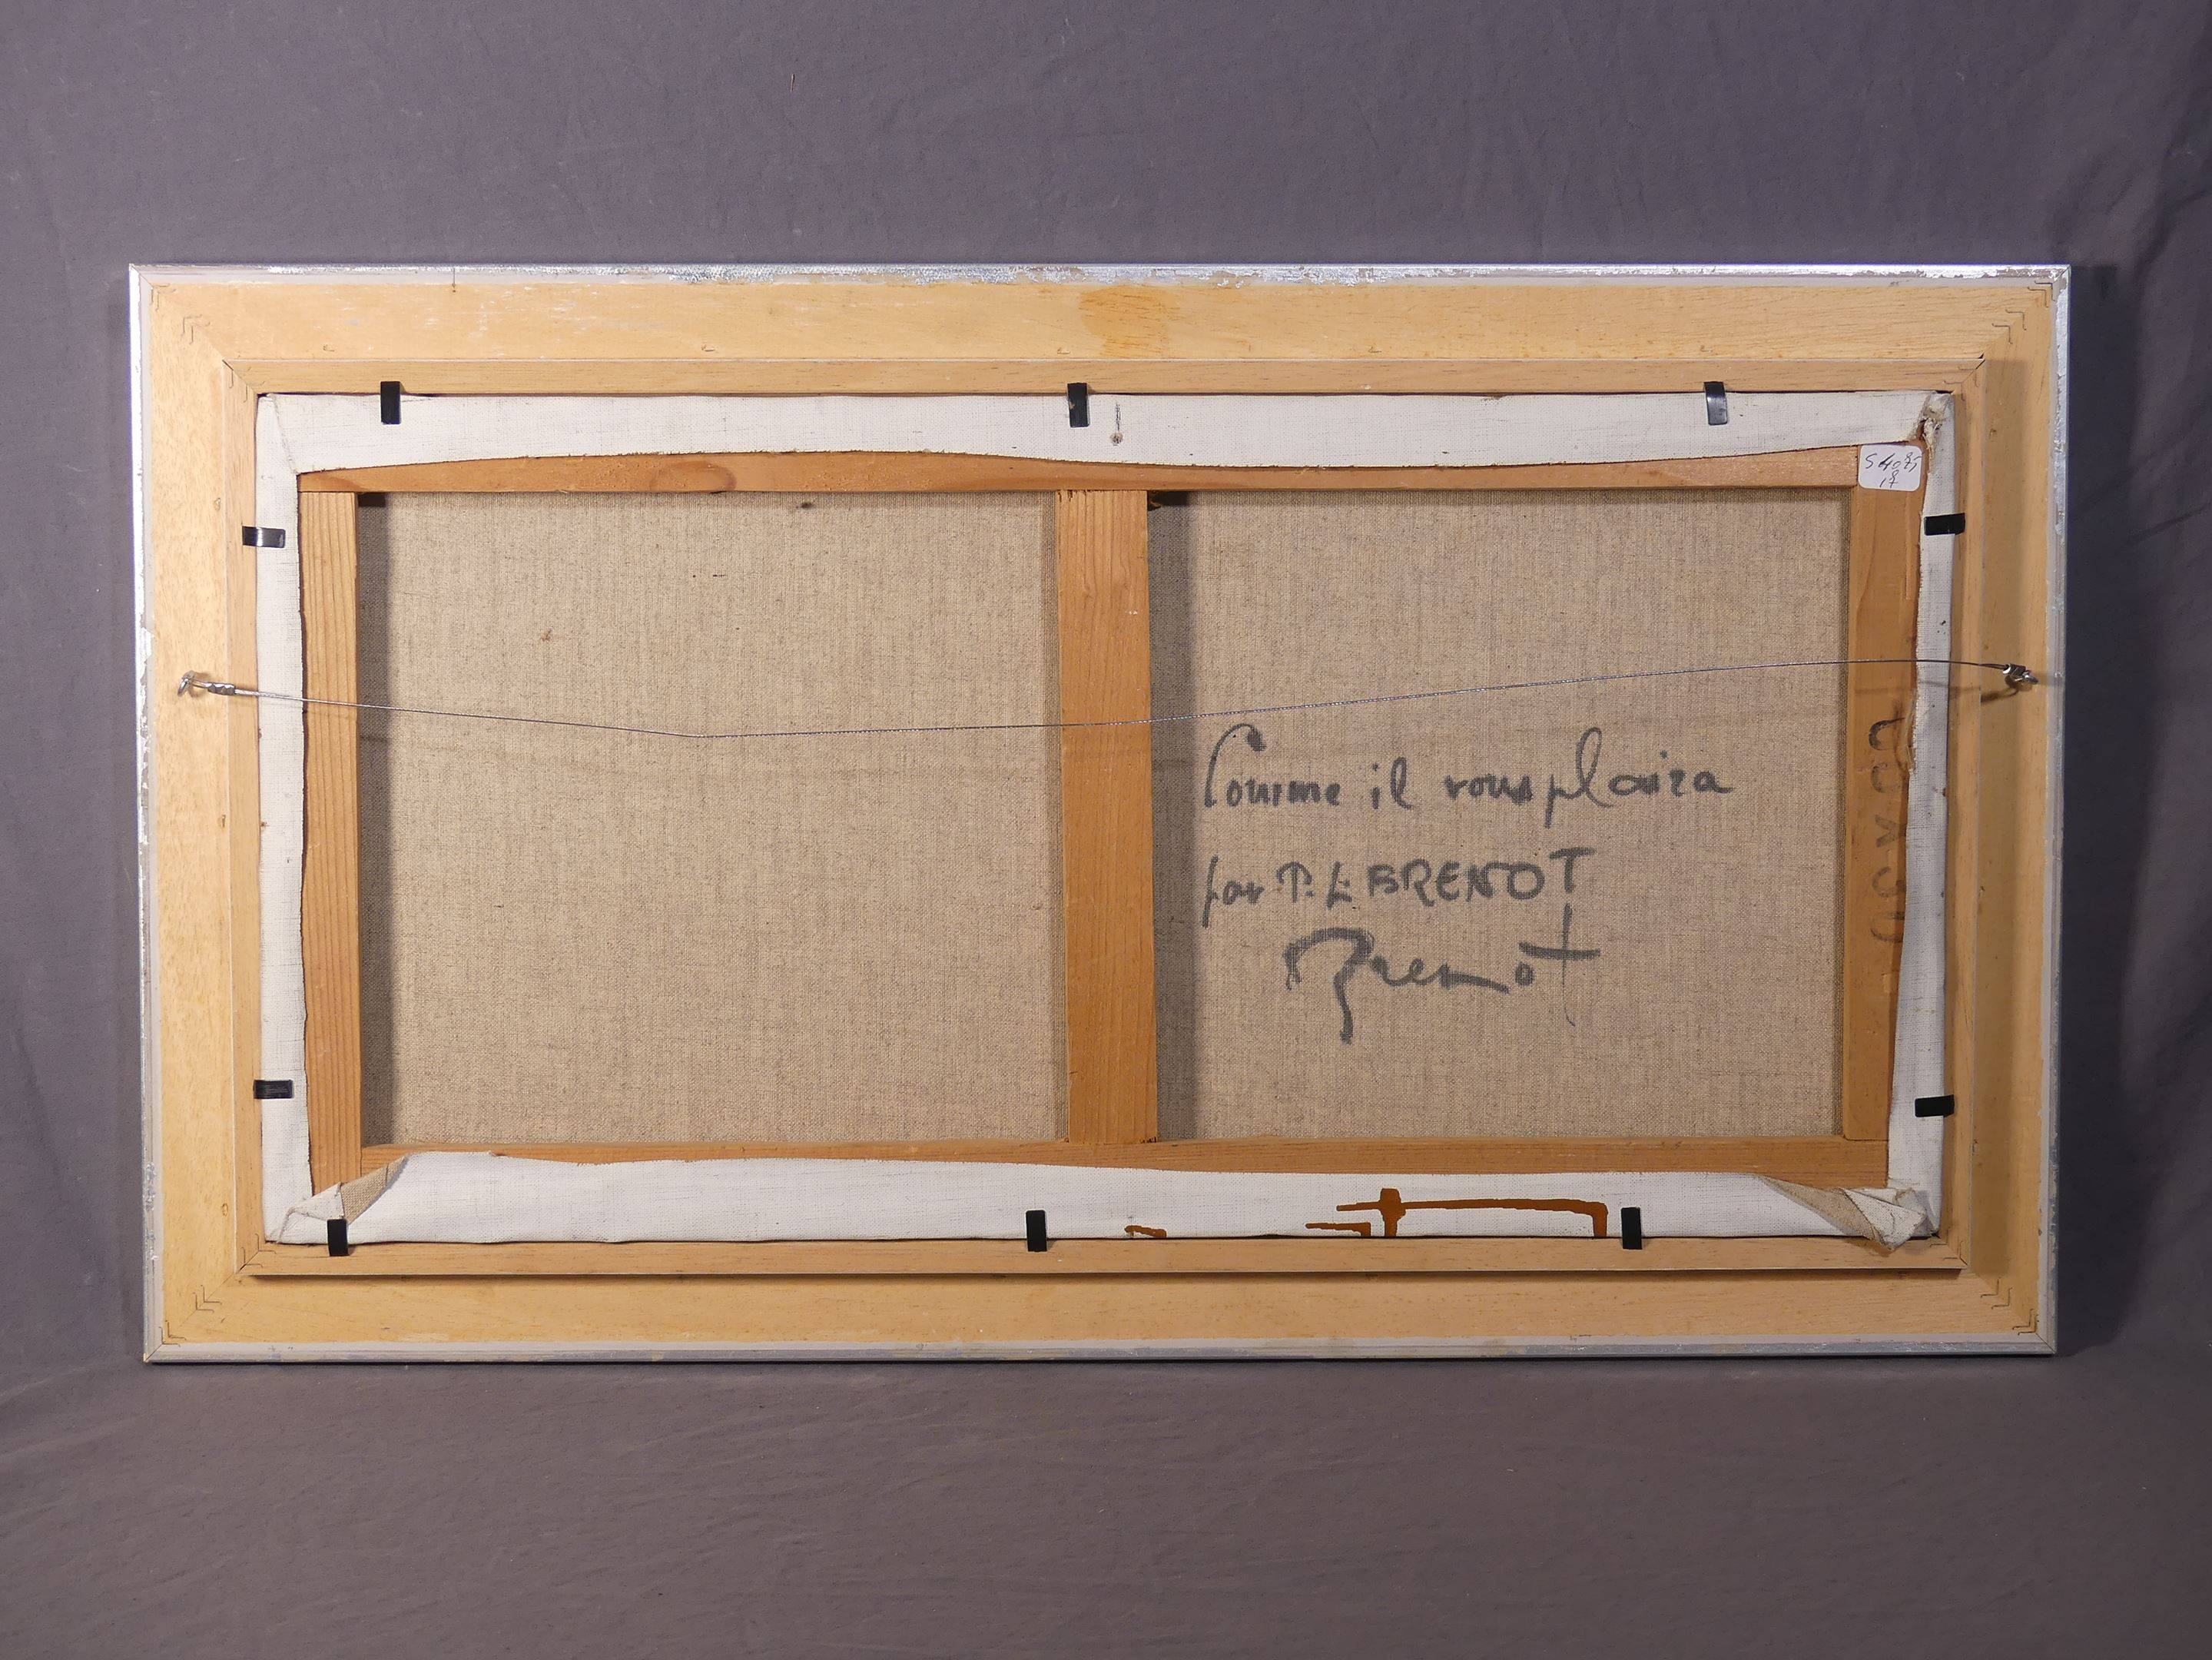 Comme il vous plaira
par P. L. BRENOT
Brenot